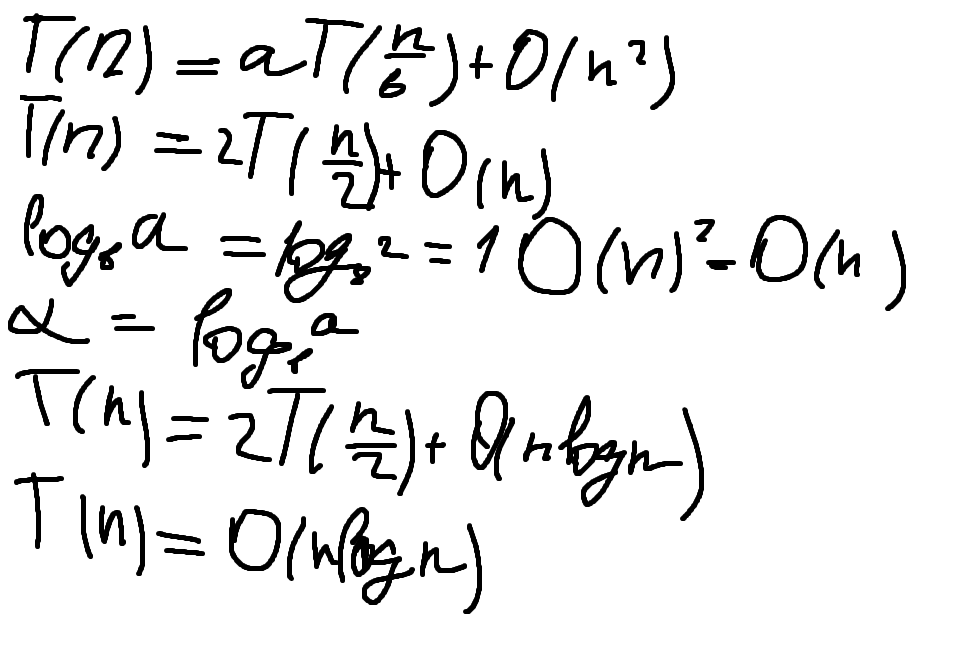 T(n) = aT(n/b) + O(n²)
T(n) = 2T(n/2) + O(n)
log_b a = log_2 2 = 1 O(n)² = O(n)
α = log_b a
T(n) = 2T(n/2) + O(n log n)
T(n) = O(n log n)